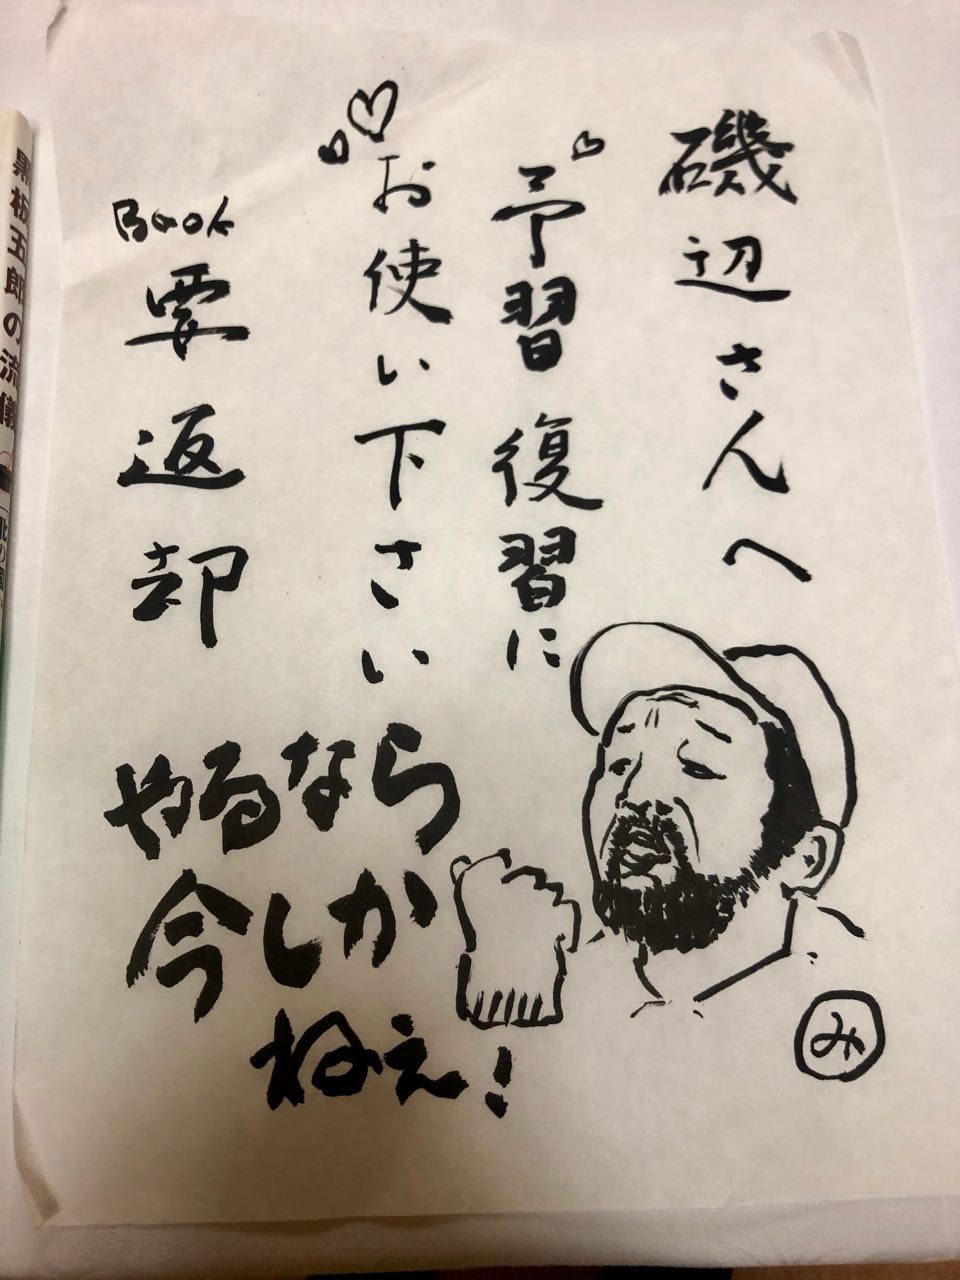 磯辺さんへ
予習復習に
お使い下さい
Book
要返却
やるなら
今しか
ねえ!
み
黒板五郎の流儀